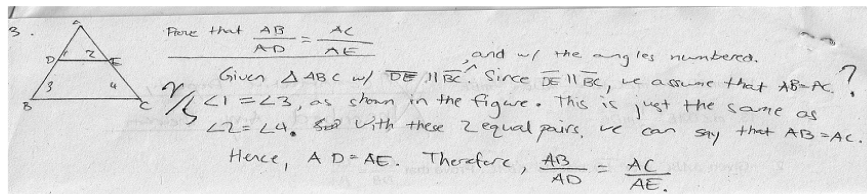 3.
A
D 1 2 E
3 4
B C
Prove that AB/AD = AC/AE
, and w/ the angles numbered.
Given △ABC w/ DE || BC. Since DE || BC, we assume that AB=AC. ?
∠1 = ∠3, as shown in the figure. This is just the same as
∠2 = ∠4. With these 2 equal pairs, we can say that AB = AC.
Hence, AD = AE. Therefore, AB/AD = AC/AE.